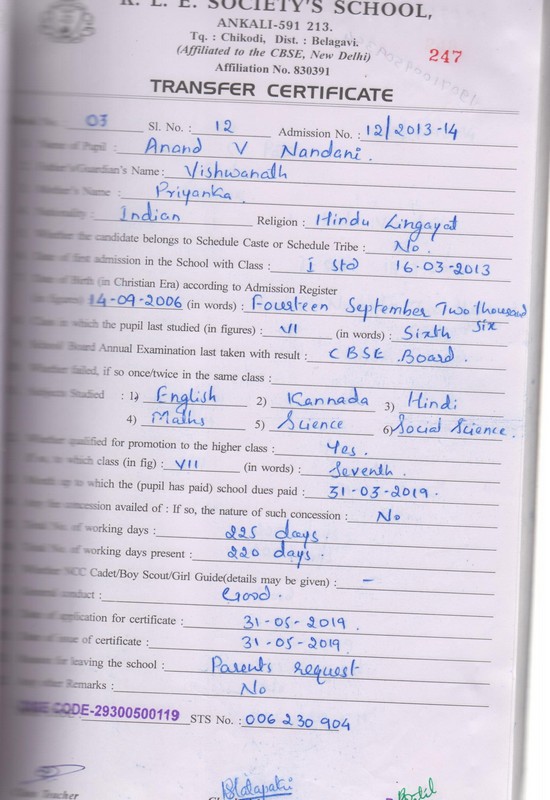 K. L. E. SOCIETY'S SCHOOL,
ANKALI-591 213.
Tq. : Chikodi, Dist. : Belagavi.
(Affiliated to the CBSE, New Delhi)
247
Affiliation No. 830391
TRANSFER CERTIFICATE
No. 03 Sl. No. : 12 Admission No. : 12/2013-14
Name of Pupil : Anand V Nandani.
Father's/Guardian's Name : Vishwanath
Mother's Name : Priyanka.
Nationality : Indian Religion : Hindu Lingayat
Whether the candidate belongs to Schedule Caste or Schedule Tribe : No.
Date of first admission in the School with Class : I Std 16.03-2013
Date of Birth (in Christian Era) according to Admission Register
(in figures) 14-09-2006 (in words) : Fourteen September Two thousand six
Class in which the pupil last studied (in figures) : VI (in words) : Sixth
School/Board Annual Examination last taken with result : CBSE Board.
Whether failed, if so once/twice in the same class :
Subjects Studied : 1) English 2) Kannada 3) Hindi
4) Maths 5) Science 6) Social Science.
Whether qualified for promotion to the higher class : Yes.
If so, to which class (in fig) : VII (in words) : Seventh.
Month up to which the (pupil has paid) school dues paid : 31-03-2019.
Any fee concession availed of : If so, the nature of such concession : No
Total No. of working days : 225 days.
Total No. of working days present : 220 days.
Whether NCC Cadet/Boy Scout/Girl Guide(details may be given) : -
General conduct : Good.
Date of application for certificate : 31-05-2019.
Date of issue of certificate : 31-05-2019.
Reason for leaving the school : Parents request
Any other Remarks : No
DISE CODE-29300500119 STS No. : 006230904
Class Teacher